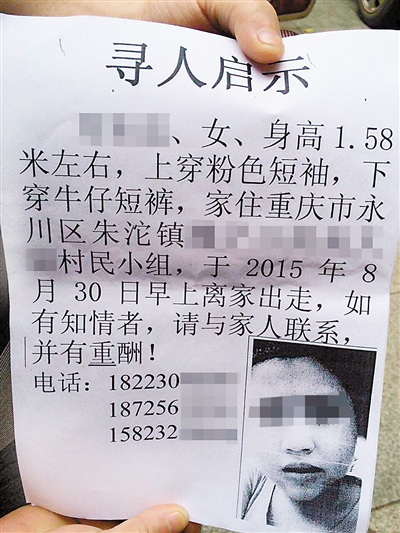 寻人启示
、女、身高1.58
米左右，上穿粉色短袖，下
穿牛仔短裤，家住重庆市永
川区朱沱镇
村民小组，于 2015 年 8
月 30 日早上离家出走，如
有知情者，请与家人联系，
并有重酬！
电话：182230
187256
158232